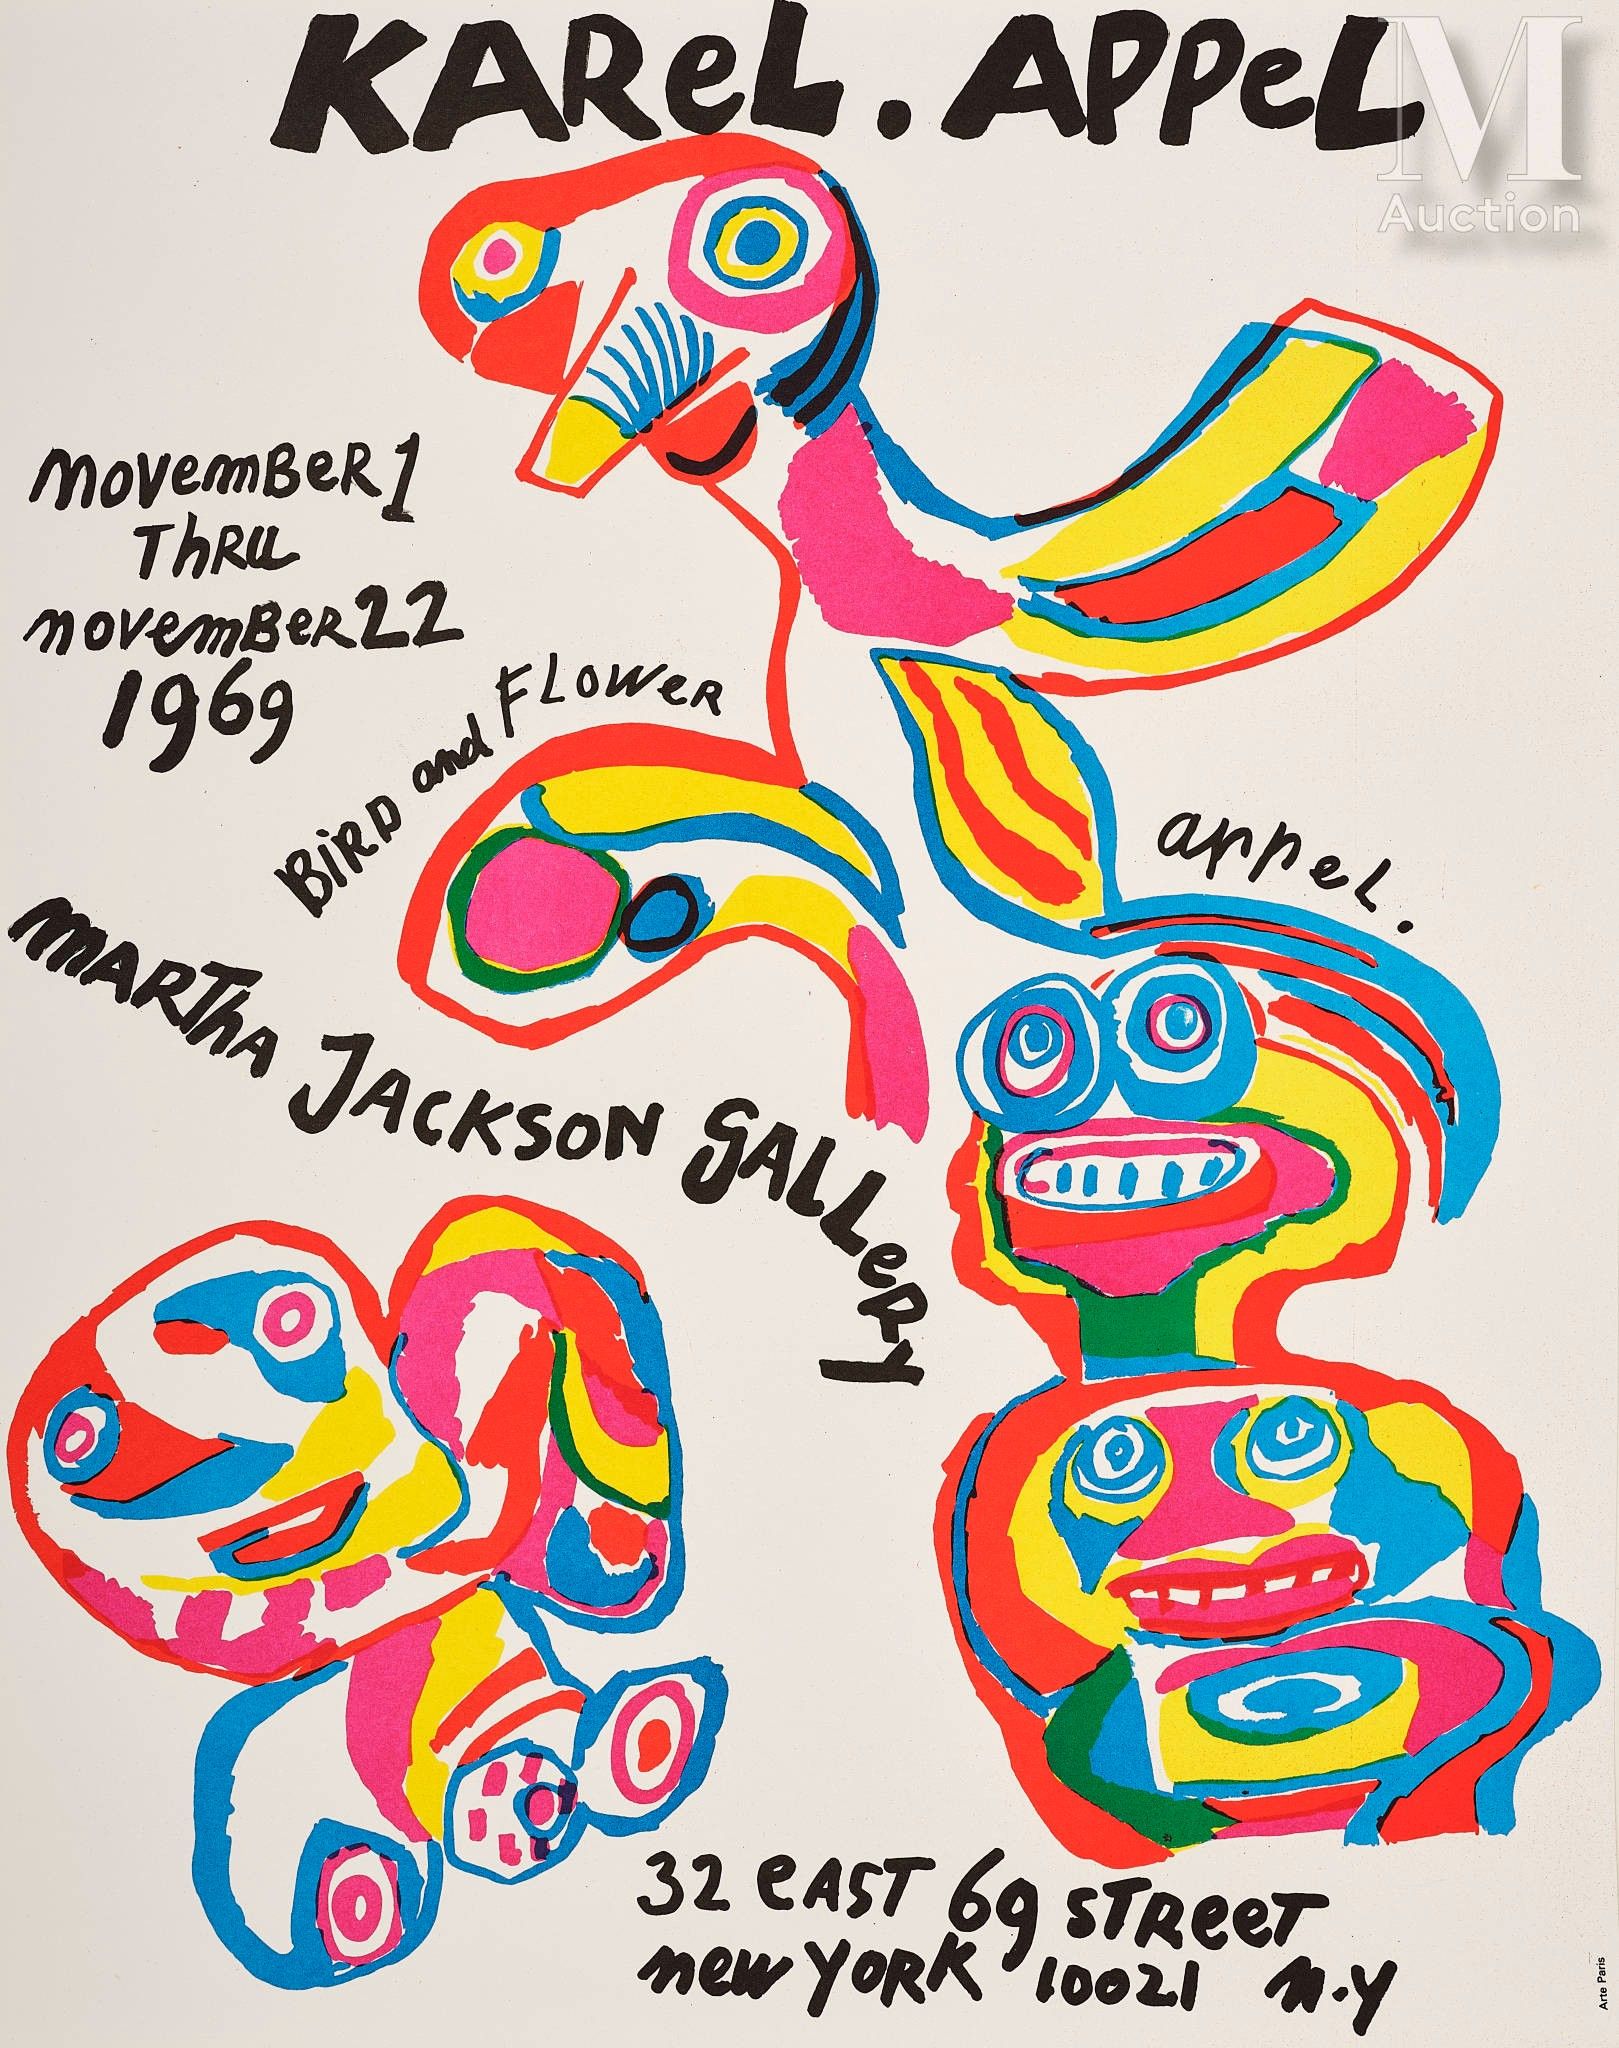 KAReL . APPeL
M
Auction
novemBeR 1
ThRu
novemBeR 22
1969
BiRD and FLOWeR
appeL.
mARTha JACKSON GALLeRy
32 eAST 69 STReeT
new YORK 10021 n.y
Arte Paris